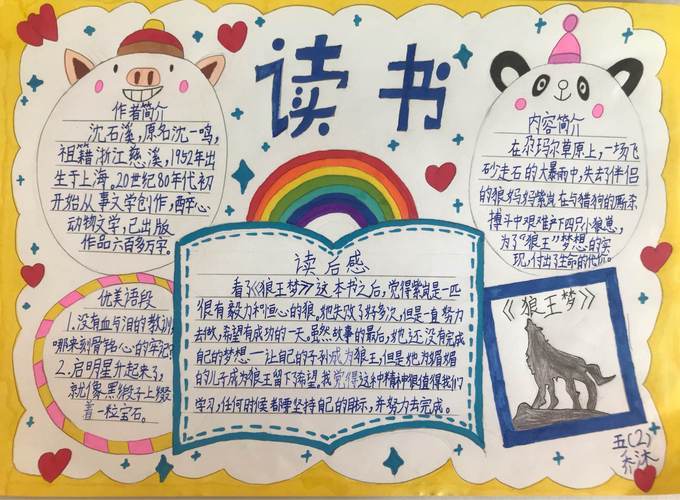 读书
作者简介
沈石溪,原名沈一鸣,
祖籍浙江慈溪,1952年出
生于上海。20世纪80年代初
开始从事文学创作,醉心
动物文学,已出版
作品六百多万字。
内容简介
在尕玛尔草原上,一场飞
砂走石的大暴雨中,失去了伴侣
的狼妈妈紫岚在与猎狗的厮杀
搏斗中艰难产下四只小狼崽,
为了“狼王”梦想的实
现,付出了生命的代价。
优美语段
1.没有血与泪的教训,
哪来刻骨铭心的牢记?
2.启明星升起来了,
就像黑缎子上缀
着一粒宝石。
读后感
看了《狼王梦》这本书之后,觉得紫岚是一匹
很有毅力和恒心的狼。她失败了好多次,但是一直努力
去做,希望有成功的一天。虽然故事的最后,她还没有完成
自己的梦想——让自己的子孙成为狼王,但是她为媚媚
的儿子成为狼王留下了希望。我觉得这种精神很值得我们
学习,任何时候都要坚持自己的目标,并努力去完成。
《狼王梦》
五(2)
乔沐